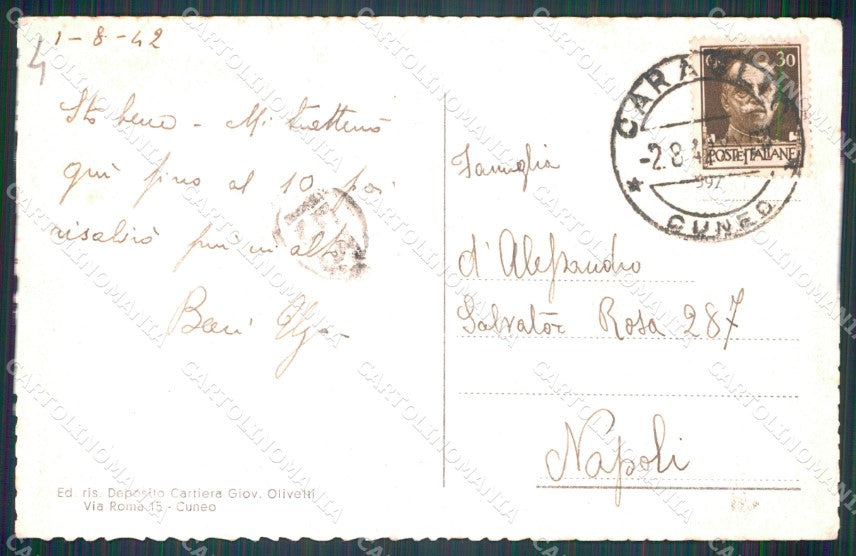 1-8-42
4
Sto bene - Mi tratterrò
quì fino al 10 poi
risalirò più in alto
Baci
Famiglia
d'Alessandro
Salvator Rosa 287
Napoli
30
POSTE ITALIANE
CARAGLIO
-2.8.42
CUNEO
Ed. ris. Deposito Cartiera Giov. Olivetti
Via Roma 15 - Cuneo
CARTOLINOMANIA